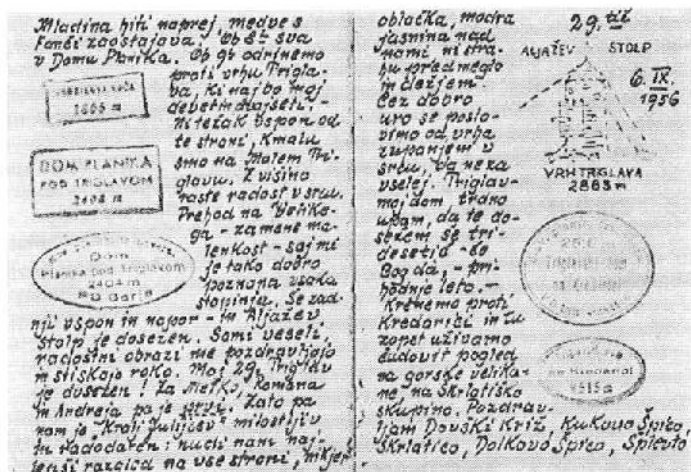 Mladina hiti naprej, medve s
Fanči zaostajava. Ob 8h sva
v Domu Planika. Ob 9h odrinemo
proti vrhu Trigla-
va, ki naj bo moj
devetindvajseti. -
Ni težak vspon od
te strani, kmalu
smo na Malem Tri-
glavu. Z višino
raste radost v srcu.
Prehod na Velike-
ga - za mene ma-
lenkost - saj mi
je tako dobro
poznana vsaka
stopinja. Še zad-
nji vspon in napor - in Aljažev
stolp je dosežen. Sami veseli,
radostni obrazi me pozdravljajo
in stiskajo roko. Moj 29. Triglav
je dosežen! Za Metko, Romana
in Andreja pa je prvi. Zato pa
nam je "Kralj Julijcev" milostljiv
in radodaren i nudi nam naj-
lepši razgled na vse strani, nikjer
1805 m
DOM PLANIKA
POD TRIGLAVOM
2404 m
Dom
Planika pod Triglavom
2404 m
PD Gorje
oblačka, modra
jasnina nad
nami ni stra-
hu pred meglo
in dežjem.
Čez dobro
uro se poslo-
vimo od vrha
z upanjem v
srcu, da ne za
vselej. Triglav-
moj dom, trdno
upam, da te do-
sežem še tri-
desetič - če
Bog da, - pri-
hodnje leto. -
Krenemo proti
Kredarici in tu
zopet uživamo
čudovit pogled
na gorske velika-
ne, na Škrlatiško
skupino. Pozdrav-
ljam Dovški Križ, Kukovo Špico,
Škrlatico, Dolkovo Špico,
29. ič
ALJAŽEV STOLP
6. IX.
1956
VRH TRIGLAVA
2863 m
2515 m